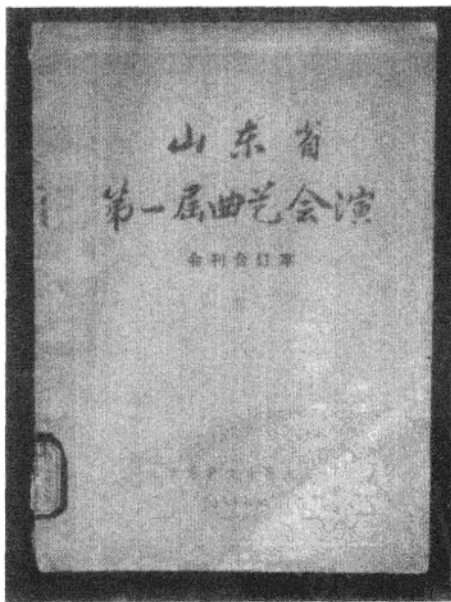 山东省
第一届曲艺会演
会刊合订本